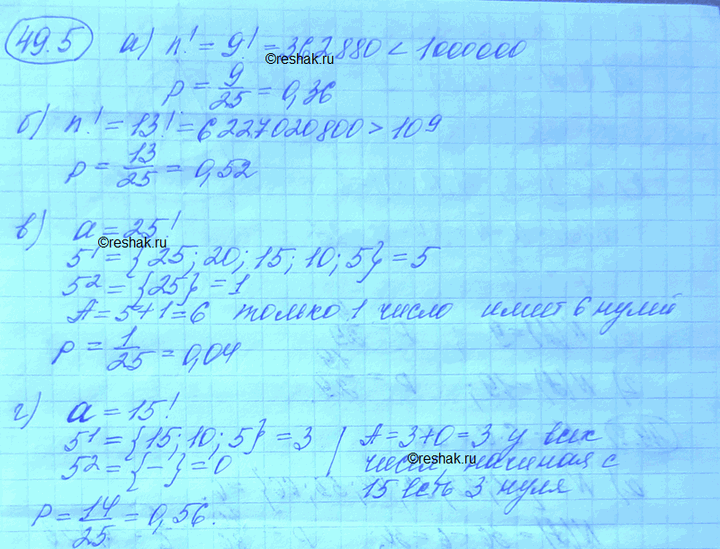 49.5 а) n! = 9! = 362880 < 1000000
©reshak.ru
p = 9/25 = 0,36
б) n! = 13! = 6227020800 > 10^9
p = 13/25 = 0,52
в) a = 25!
©reshak.ru
5^1 = {25; 20; 15; 10; 5} = 5
5^2 = {25} = 1
A = 5+1 = 6 только 1 число имеет 6 нулей
p = 1/25 = 0,04
г) a = 15!
5^1 = {15; 10; 5} = 3 | A = 3+0 = 3 у всех
5^2 = {-} = 0 | чисел, начиная с
©reshak.ru
15 есть 3 нуля
P = 14/25 = 0,56.